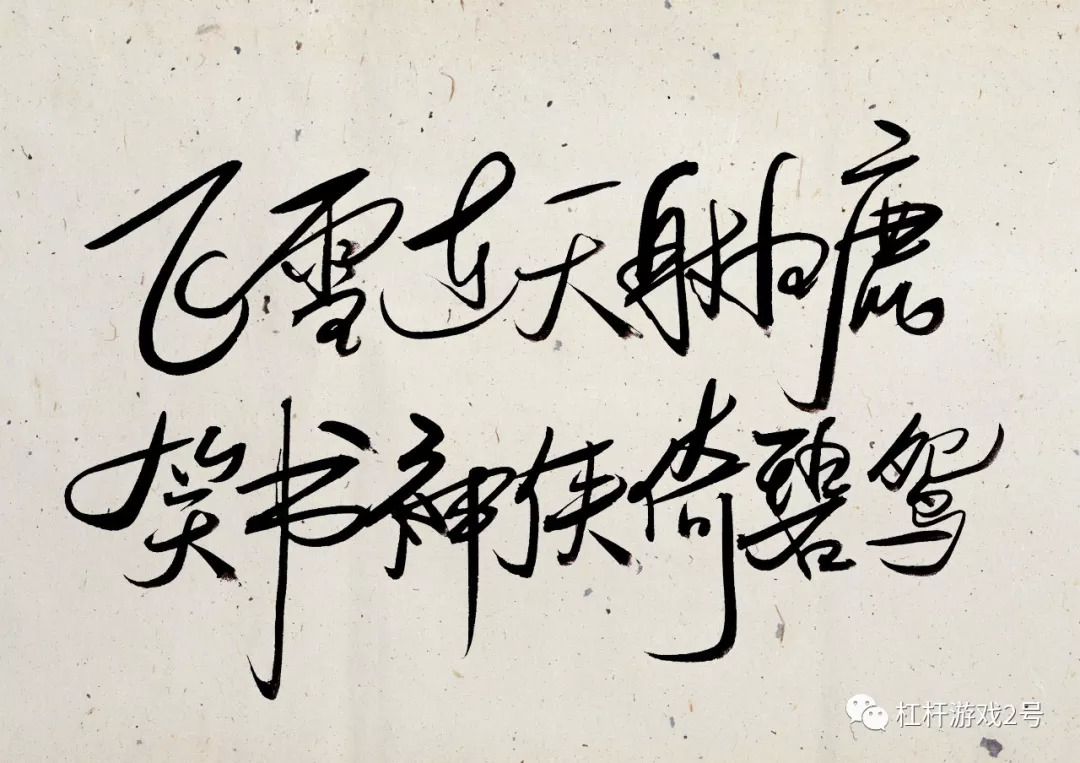 飞雪连天射白鹿
笑书神侠倚碧鸳
杠杆游戏2号